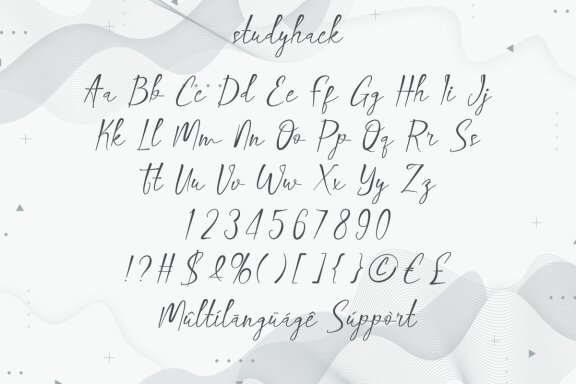 studyhack
Aa Bb Cc Dd Ee Ff Gg Hh Ii Jj
Kk Ll Mm Nn Oo Pp Qq Rr Ss
Tt Uu Vv Ww Xx Yy Zz
1 2 3 4 5 6 7 8 9 0
! ? # $ & % ( ) [ ] { } © € £
Mûltílãngüágê Súppòrt